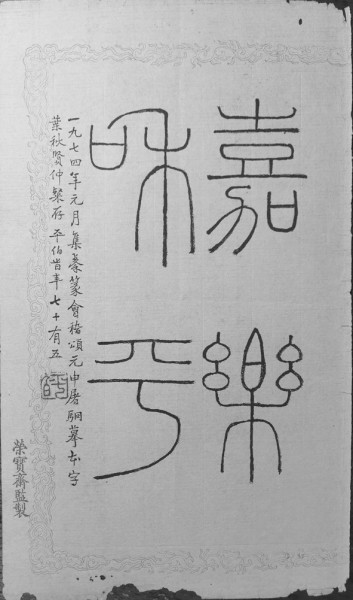 嘉樂
咊平
一九七四年元月集秦篆會稽頌元申屠駉摹本字
葉秋賢仲粲存 平伯旹年七十有五
榮寶齋監製